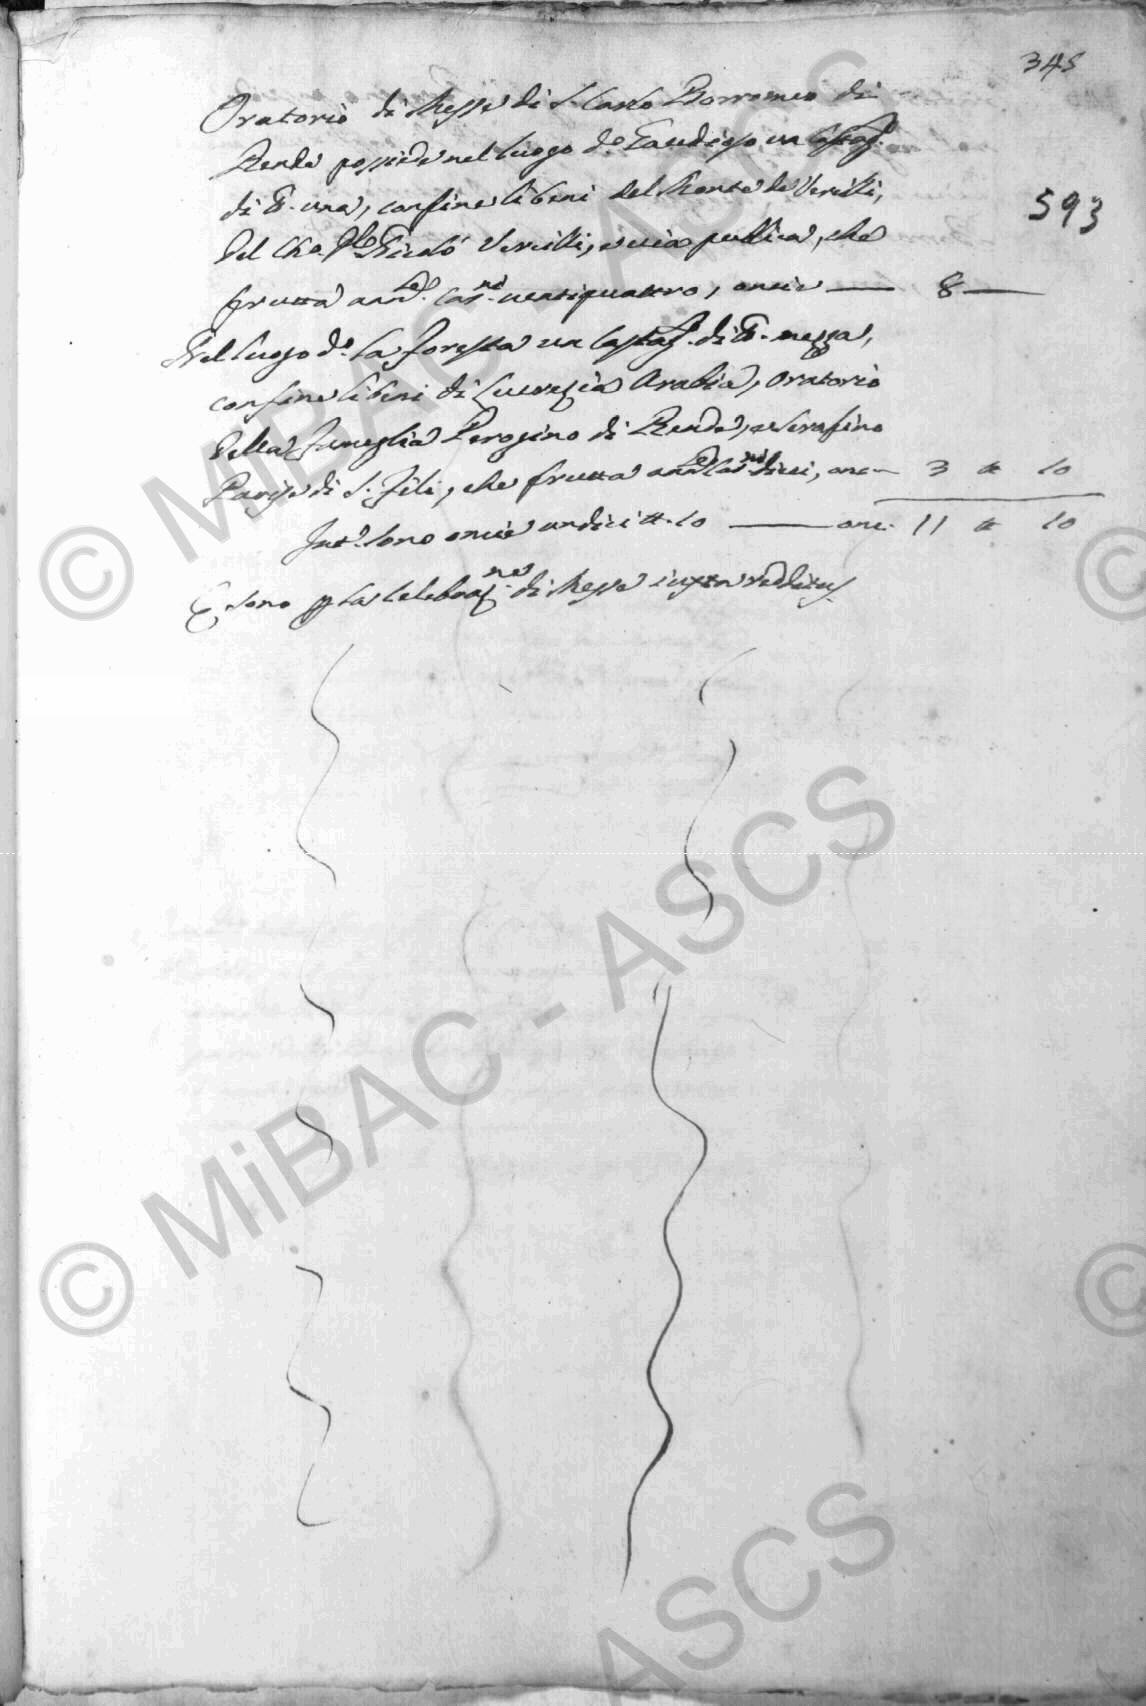 345
Oratorio di Messe di S. Carlo Borromeo di
Rende possiede nel luogo d.º Gaudioso un Castag.
di tt.ª una, confine li beni del Monte de Vercilli,
del Ch.º Nicolò Vercilli, e via publica, che
frutta ann.le car.ni ventiquattro, oncie — 8 —
593
Nel luogo d.º la foresta un Castag. di tt.ª mezza,
confine li beni di Lucrezia Arabia, Oratorio
della fameglia Perogino di Rende, e Serafino
Parise di S. Fili, che frutta ann.le car.ni dieci, onc— 3 tt 10
Int.º sono oncie undici tt. 10 — onc. 11 tt 10
E sono p la Celebraz.ne di Messe iuxta redditus
© MiBAC - ASCS
© MiBAC - ASCS
©
©
ASCS